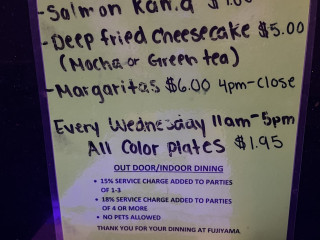 -Salmon Kama
-Deep fried cheesecake $5.00
(Mocha or Green tea)
-Margaritas $6.00 4pm-close
Every Wednesday 11am-5pm
All Color plates $1.95
OUT DOOR/INDOOR DINING
• 15% SERVICE CHARGE ADDED TO PARTIES
OF 1-3
• 18% SERVICE CHARGE ADDED TO PARTIES
OF 4 OR MORE
• NO PETS ALLOWED
THANK YOU FOR YOUR DINNING AT FUJIYAMA